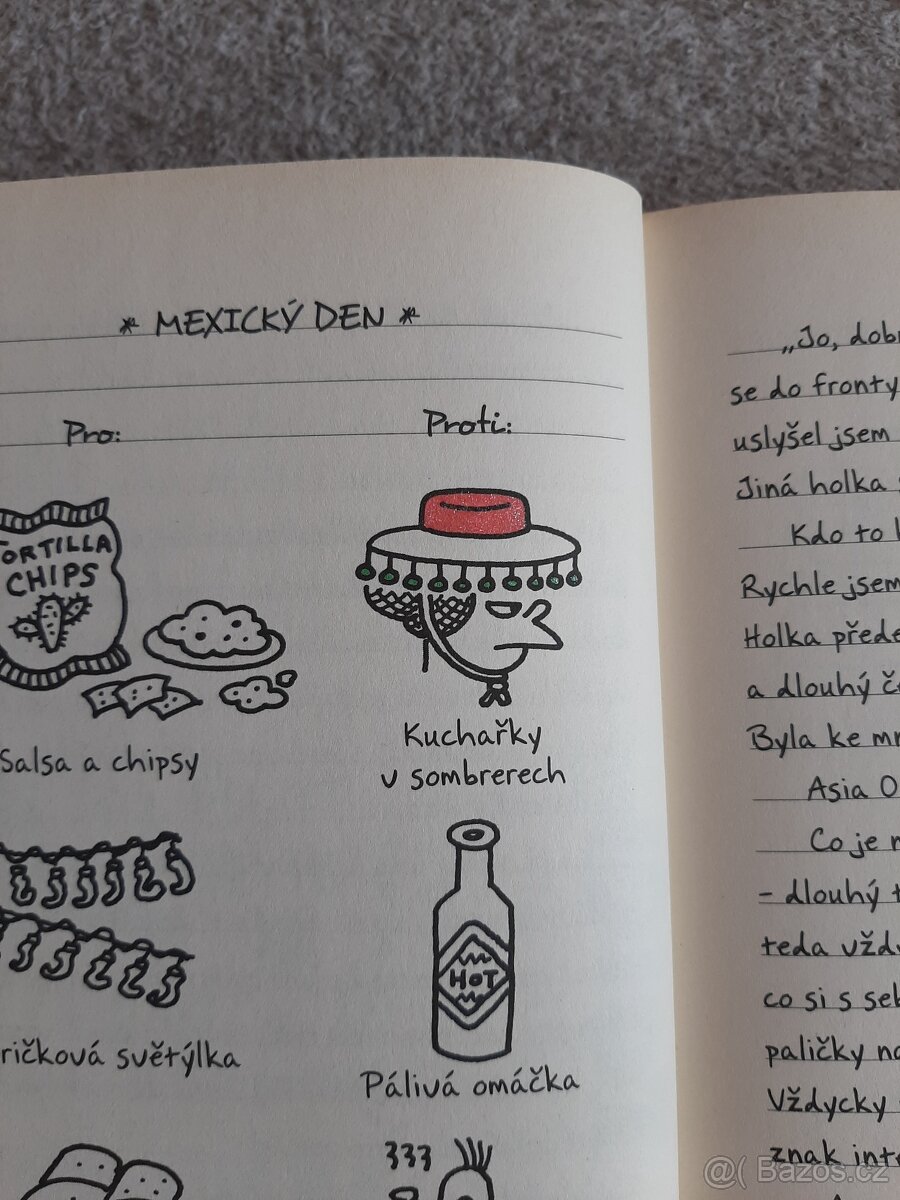 * MEXICKÝ DEN *
Pro:
Proti:
ORTILLA
CHIPS
Salsa a chipsy
Kuchařky
v sombrerech
HOT
ričková světýlka
Pálivá omáčka
„Jo, dobr
se do fronty
uslyšel jsem
Jiná holka
Kdo to
Rychle jsem
Holka přede
a dlouhý
Byla ke mn
Asia O
Co je
- dlouhý
teda vždy
co si s seb
paličky na
Vždycky
znak int
@ Bazos.cz